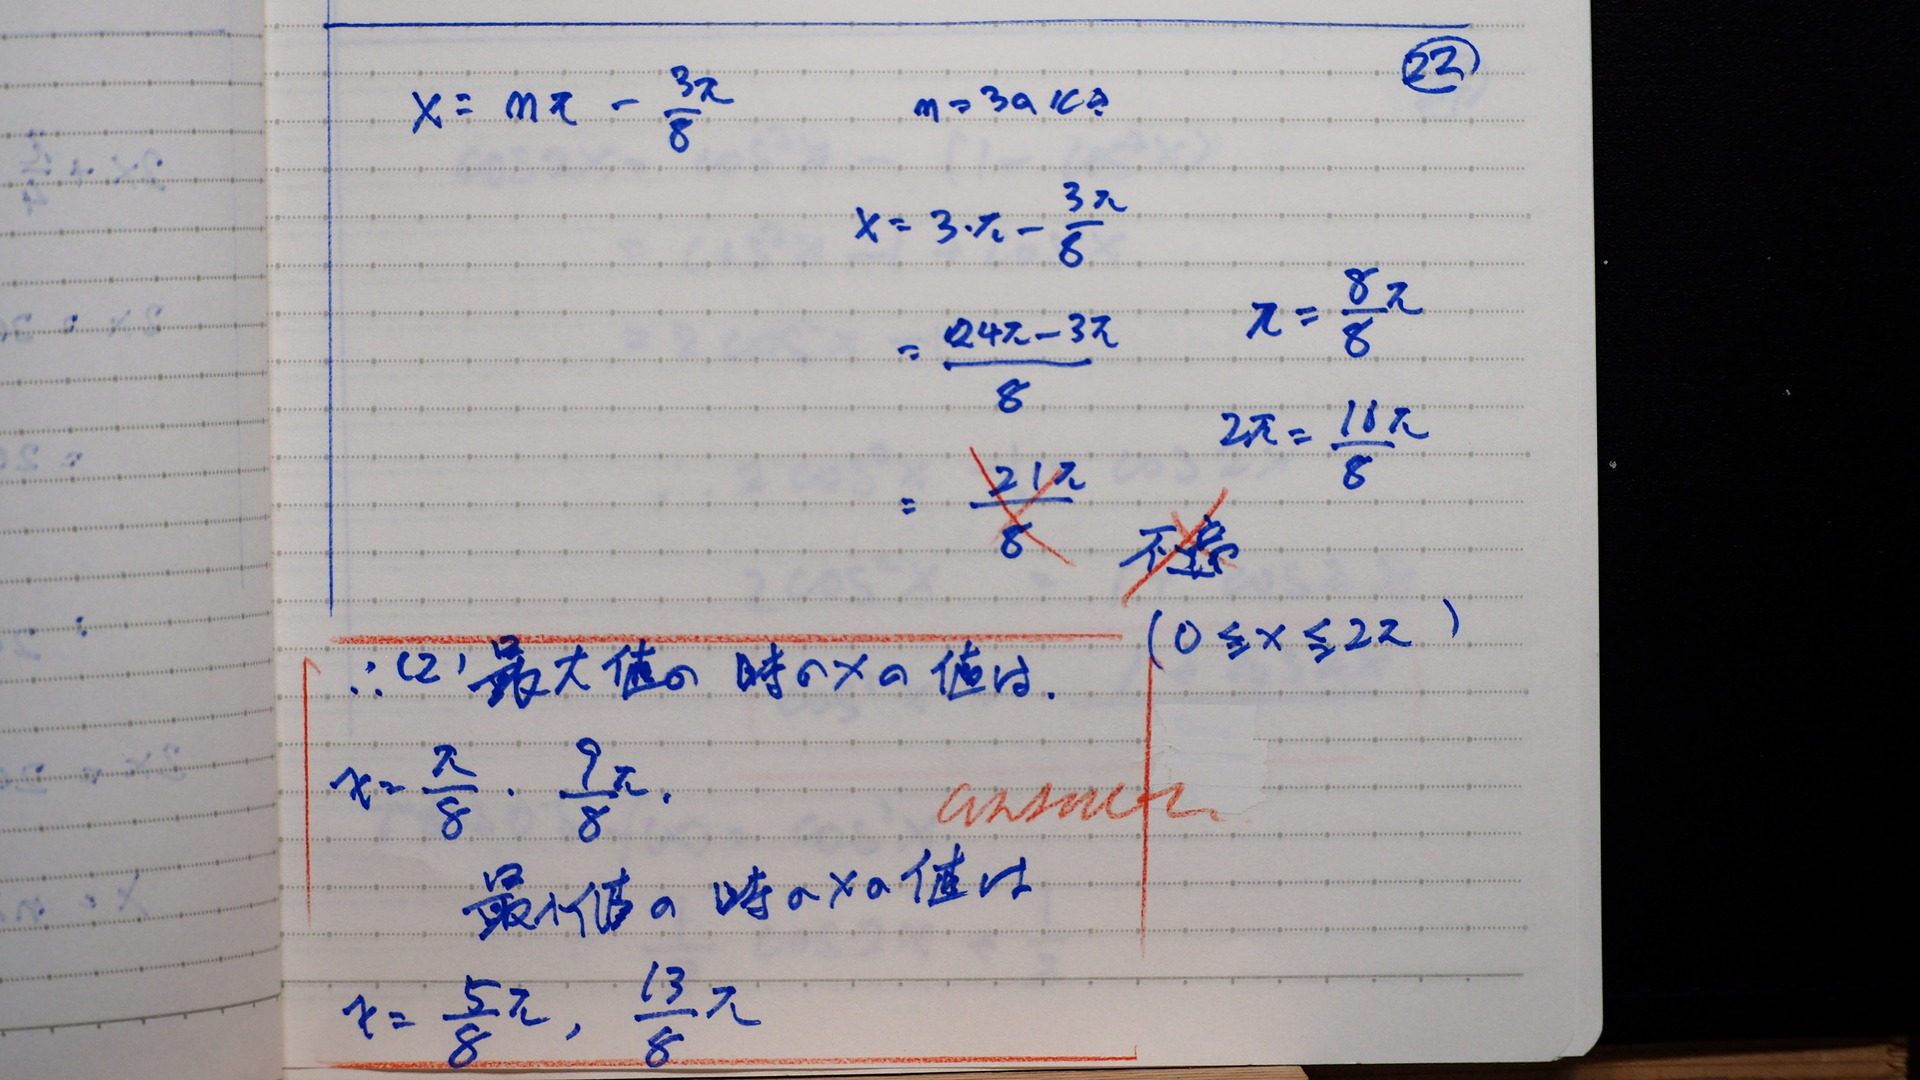 22
x = nπ - 3π/8 n = 3のとき
x = 3・π - 3π/8
= 24π - 3π/8
π = 8/8 π
2π = 16π/8
= 21π/8
不適
(0 ≦ x ≦ 2π)
∴(2) 最大値の時のxの値は.
x = π/8 . 9/8 π.
answer.
最小値の時のxの値は
x = 5/8 π, 13/8 π